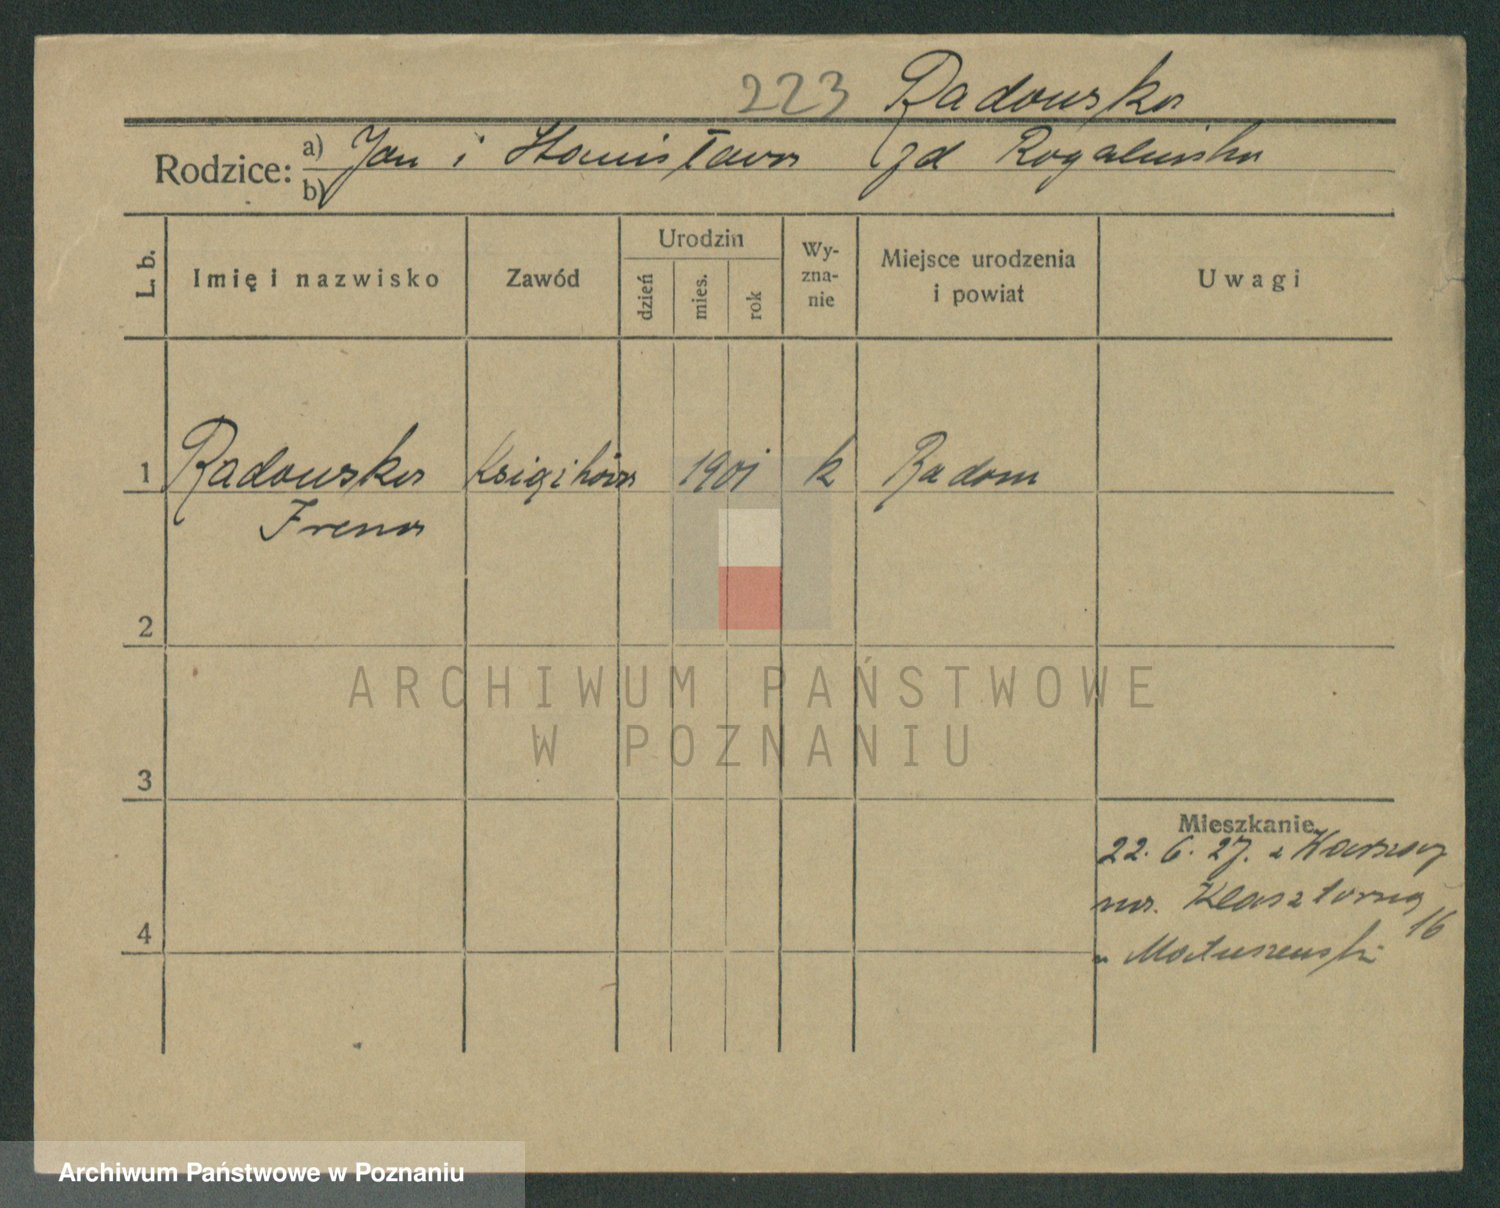 223 Radowska
Rodzice: a) Jan i Stanisława zd Rogalińska
b)
L. b. Imię i nazwisko Zawód Urodzin dzień mies. rok Wy-zna-nie Miejsce urodzenia i powiat Uwagi
1 Radowska Księgihów 1901 k Radom
Irena
2
3
4
Mieszkanie
22. 6. 27. z Warszawy
na. Klasztorną 16
u Matuszewski
ARCHIWUM PAŃSTWOWE
W POZNANIU
Archiwum Państwowe w Poznaniu